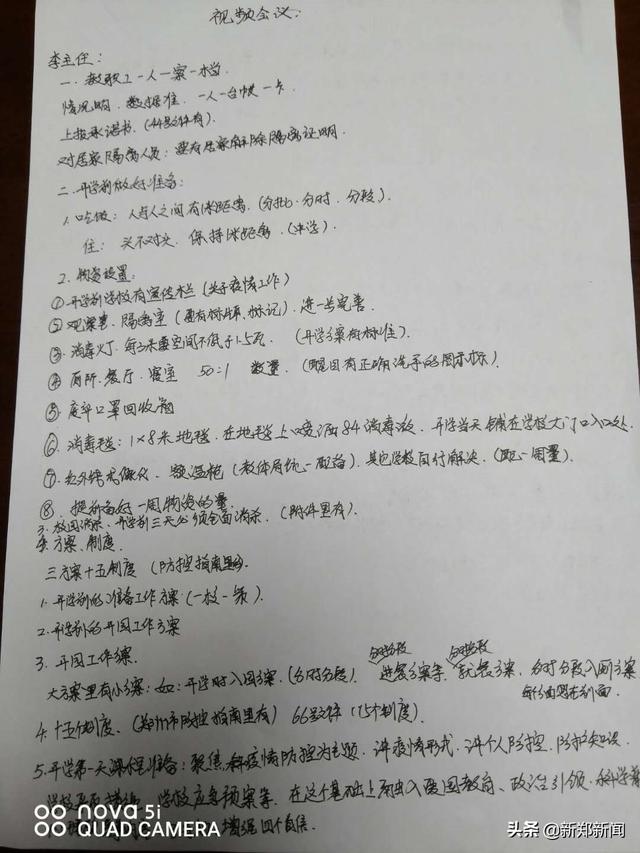 视频会议:
李主任:
一. 教职工一人一案一档.
情况明. 数据准. 一人一台帐一卡
上报承诺书. (44号文件有).
对居家隔离人员: 要有居家解除隔离证明.
二. 开学前做好准备:
1. 吃饭: 人与人之间有1米距离. (分批. 分时. 分段).
住: 头不对头. 保持1米距离. (中学).
2. 物资设置:
① 开学前学校有宣传栏 (关于疫情工作)
② 观察室. 隔离室 (要有标牌. 标记). 进一步完善.
③ 消毒灯. 每立米空间不低于1.5瓦. (开学方案有标准).
④ 厕所. 餐厅. 寝室 50:1 数量. (醒目有正确洗手的图示标).
⑤ 废弃口罩回收箱
⑥ 消毒毯: 1×8米地毯. 在地毯上喷洒84消毒液. 开学当天铺在学校大门口入口处.
⑦ 额温枪 (教体局统一配备). 其它学校自行解决. (配一周量).
⑧ 提前备好一周物资的量.
3. 校园消杀. 开学前三天必须全面消杀. (附件里有).
4. 方案. 制度.
三方案十五制度 (防控指南里).
1. 开学前的准备工作方案 (一校一策).
2. 开学前的开园工作方案
3. 开园工作方案.
分时分段 分时分段
大方案里有小方案: 如: 开学时入园方案. (分时分段). 进餐方案等. 就寝方案. 分时分段入厕方案
4. 十五个制度. (郑州市防控指南里有) 66号文件 (15个制度).
5. 开学第一天课程准备: 聚焦新疫情防控为主题. 讲疫情形式. 讲个人防控. 防护知识.
学校应急预案等. 在这个基础上突出入爱国教育. 政治引领. 科学
增强四个自信.
nova 5i
QUAD CAMERA
头条 @新郑新闻